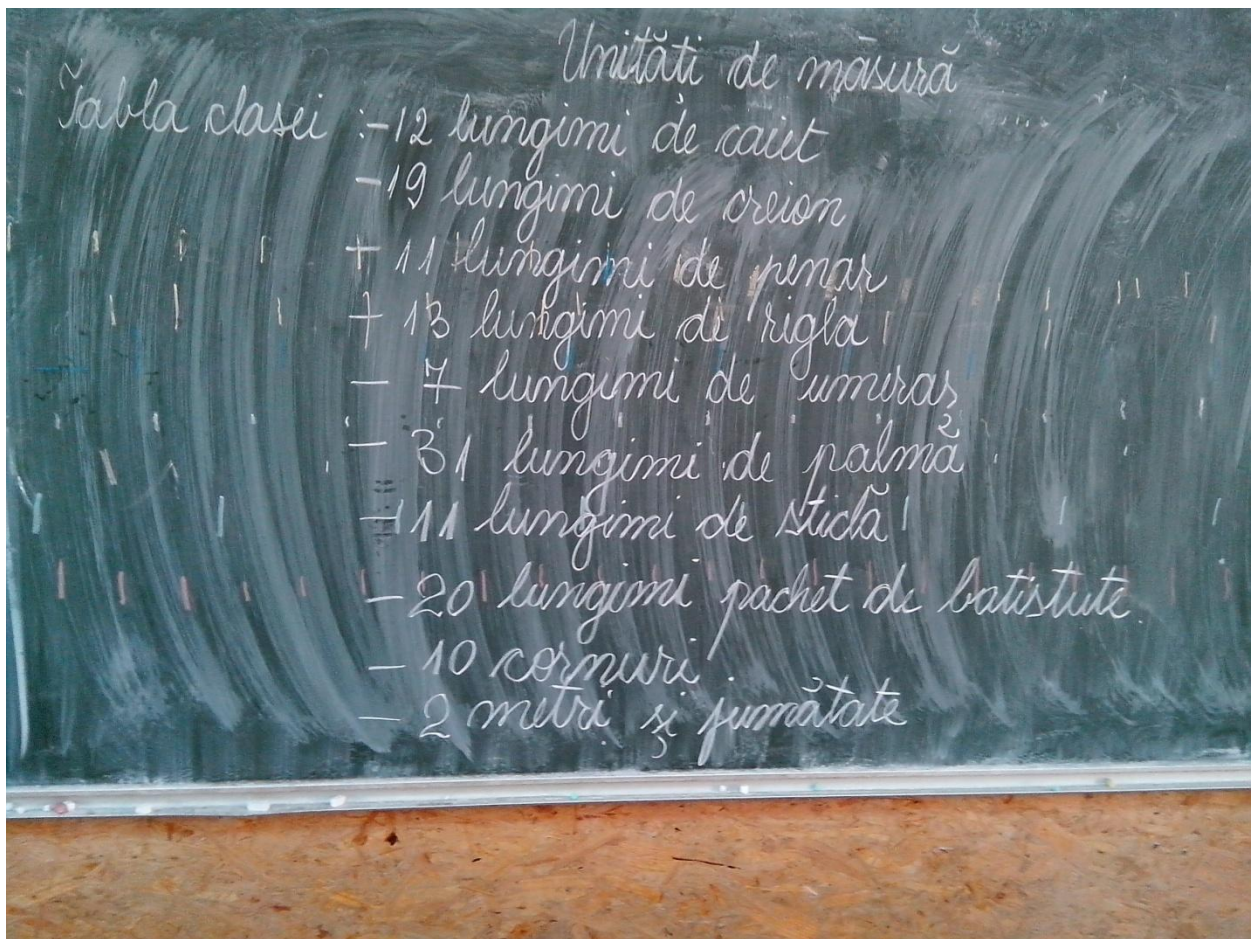 Unități de masură
Tabla clasei :-12 lungimi de caiet
-19 lungimi de creion
+ 11 lungimi de penar
+ 13 lungimi de rigla
- 7 lungimi de umeraș
- 31 lungimi de palmă
- 11 lungimi de sticlă
- 20 lungimi pachet de batistute.
- 10 cornuri.
- 2 metri și jumătate